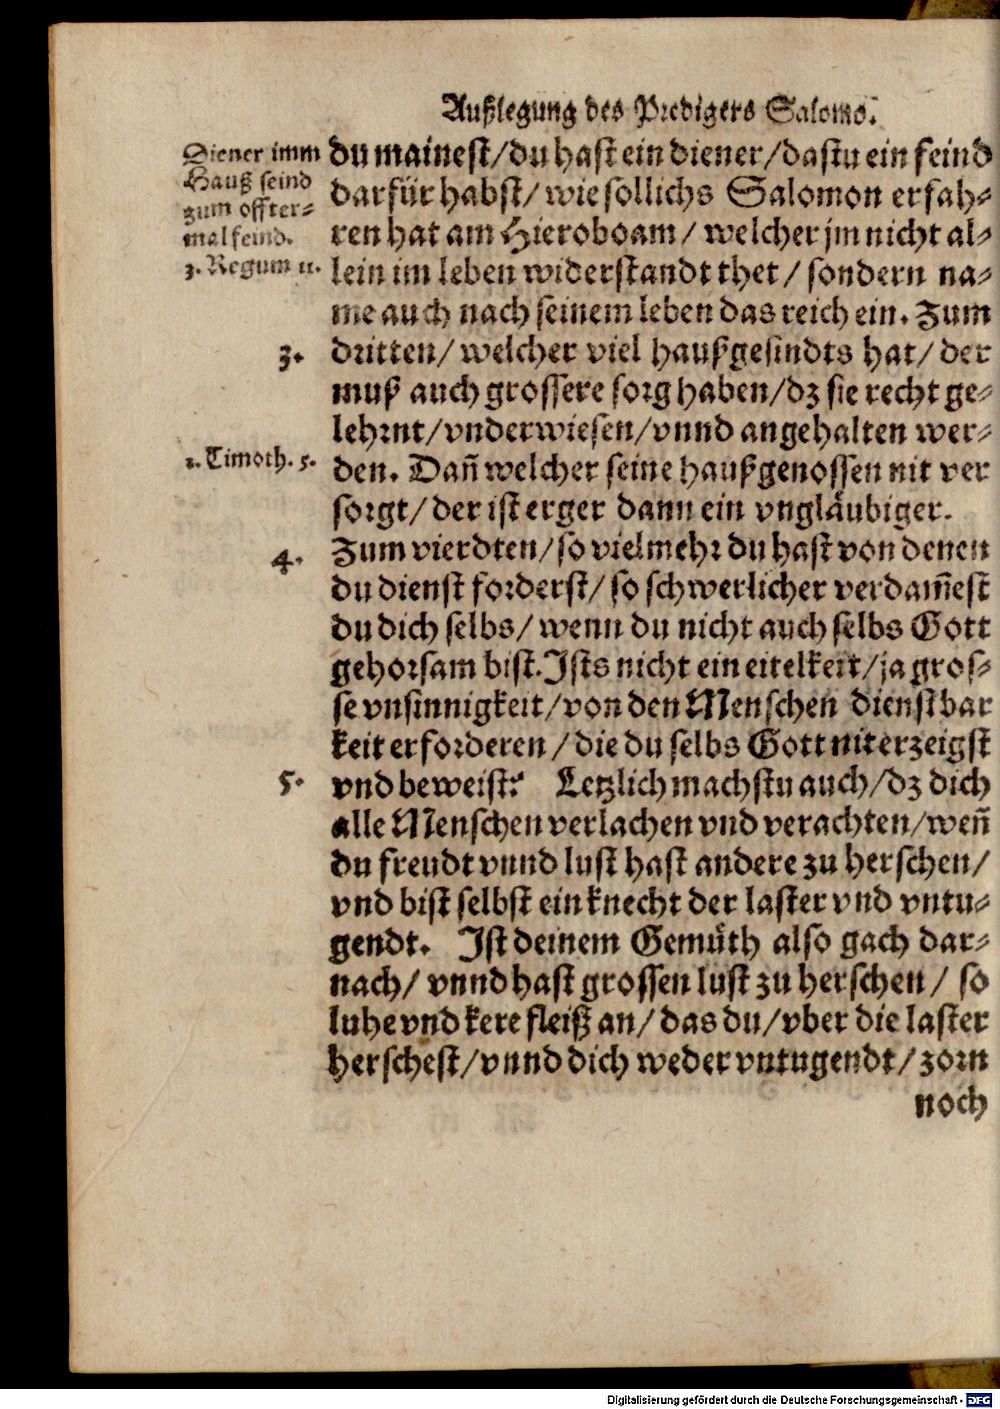 Außlegung des Predigers Salomo.
Diener imm
Hauß seind
zum offter⸗
mal feind.
3. Regum 11.
du mainest/du hast ein diener/dastu ein feind
darfür habst/ wie sollichs Salomon erfah⸗
ren hat am Hieroboam/ welcher jm nicht al⸗
lein im leben widerstandt thet/ sondern na⸗
me auch nach seinem leben das reich ein. Zum
3. dritten/ welcher viel haußgesindts hat/ der
muß auch grossere sorg haben/dz sie recht ge⸗
lehrnt/vnderwiesen/vnnd angehalten wer⸗
1. Timoth. 5.
den. Dañ welcher seine haußgenossen nit ver
sorgt/ der ist erger dann ein vnglåubiger.
4. Zum vierdten/so viel mehr du hast von denen
du dienst forderst/ so schwerlicher verdam̃est
du dich selbs/ wenn du nicht auch selbs Gott
gehorsam bist. Ists nicht ein eitelkeit/ja gros⸗
se vnsinnigkeit/von den Menschen dienstbar
keit erforderen/die du selbs Gott nit erzeigst
5. vnd beweist? Letzlich machstu auch/dz dich
alle Menschen verlachen vnd verachten/weñ
du freudt vnnd lust hast andere zu herschen/
vnd bist selbst ein knecht der laster vnd vntu⸗
gendt. Ist deinem Gemuͤth also gach dar⸗
nach/ vnnd hast grossen lust zu herschen/ so
luhe vnd kere fleiß an/ das du/vber die laster
herschest/vnnd dich weder vntugendt/ zorn
noch
Digitalisierung gefördert durch die Deutsche Forschungsgemeinschaft - DFG